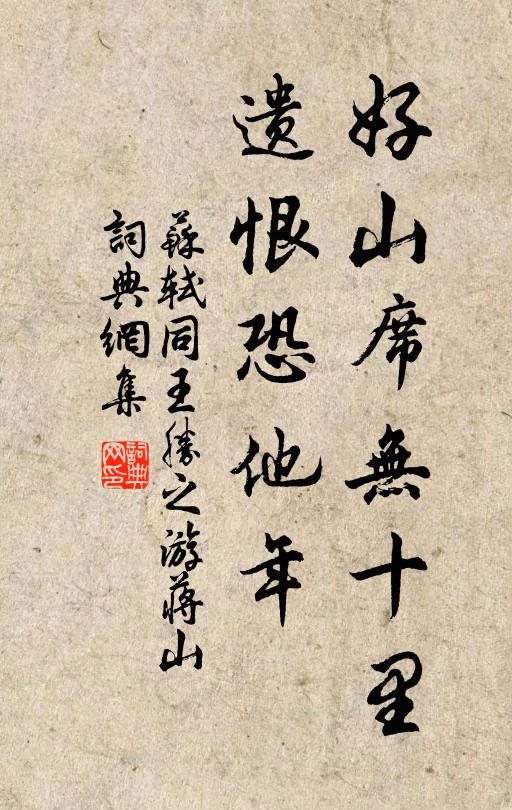 好山席無十里
遗恨恐他年
蘇軾同王勝之游蔣山
詞典網集
詞典網印